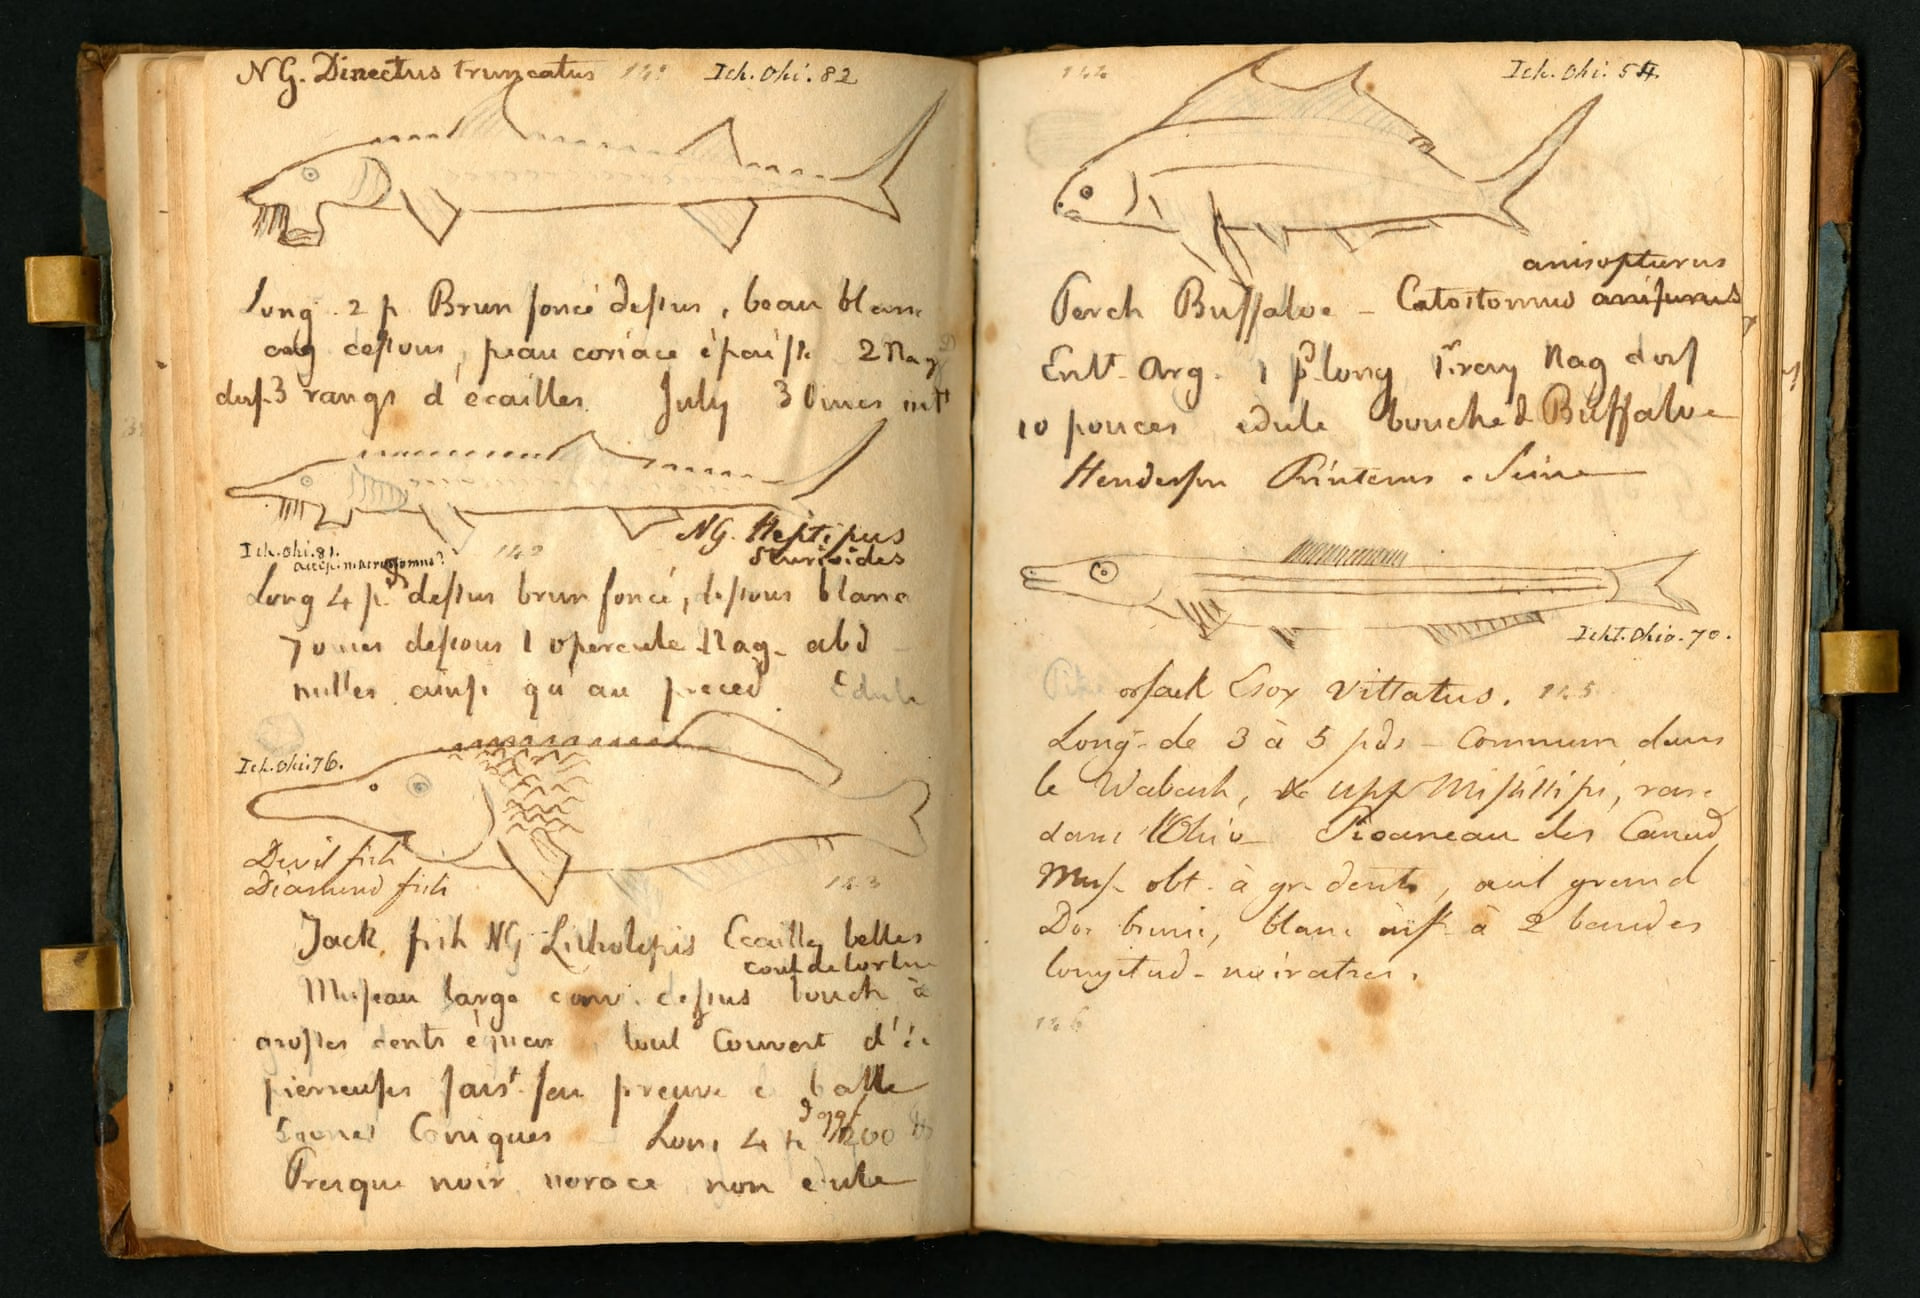 NG. Dinectus truncatus 141 Ich. Ohi. 82
Long 2 p Brun foncé dessus, beau blanc
dessous, peau coriace épaisse 2 Nag
dors. 3 rangs d'ecailles July 3 Ouies int
NG. Heptipus
Sturioides
Ich. Ohi. 81. 142
accip. macrostomus?
Long 4 p. dessus brun foncé, dessous blanc
7 ouies dessous 1 opercule Nag. abd
nulles ainsi qu'au preced Edule
Ich. Ohi. 76.
Devil fish
Diamond fish
143
Jack fish NG Litholepis Ecailly belles
coul de tortue
Museau large conv. dessus bouch à
grosses dents tout couvert d'
pierreuses fais feu preuve balle
Coniques Long 4 p 200
Presque noir vorace non edule
144 Ich. Ohi. 54.
anisopturus
Perch Buffaloe - Catostomus anisurus
Ent. Arg. 1 pd long 1r ray Nag dors
10 pouces edule bouche d Buffaloe
Henderson Printems. Seine
Icht. Ohio. 70.
Pike or Jack Esox Vittatus. 145
Long de 3 à 5 pds - Commun dans
le Wabash, & upp Mississipi, rare
dans l'Ohio Picaneau des Canad
Mus. obt. à gr dents, oeil grand
Dos brun, blanc à 2 bandes
longitud - noiratres.
146